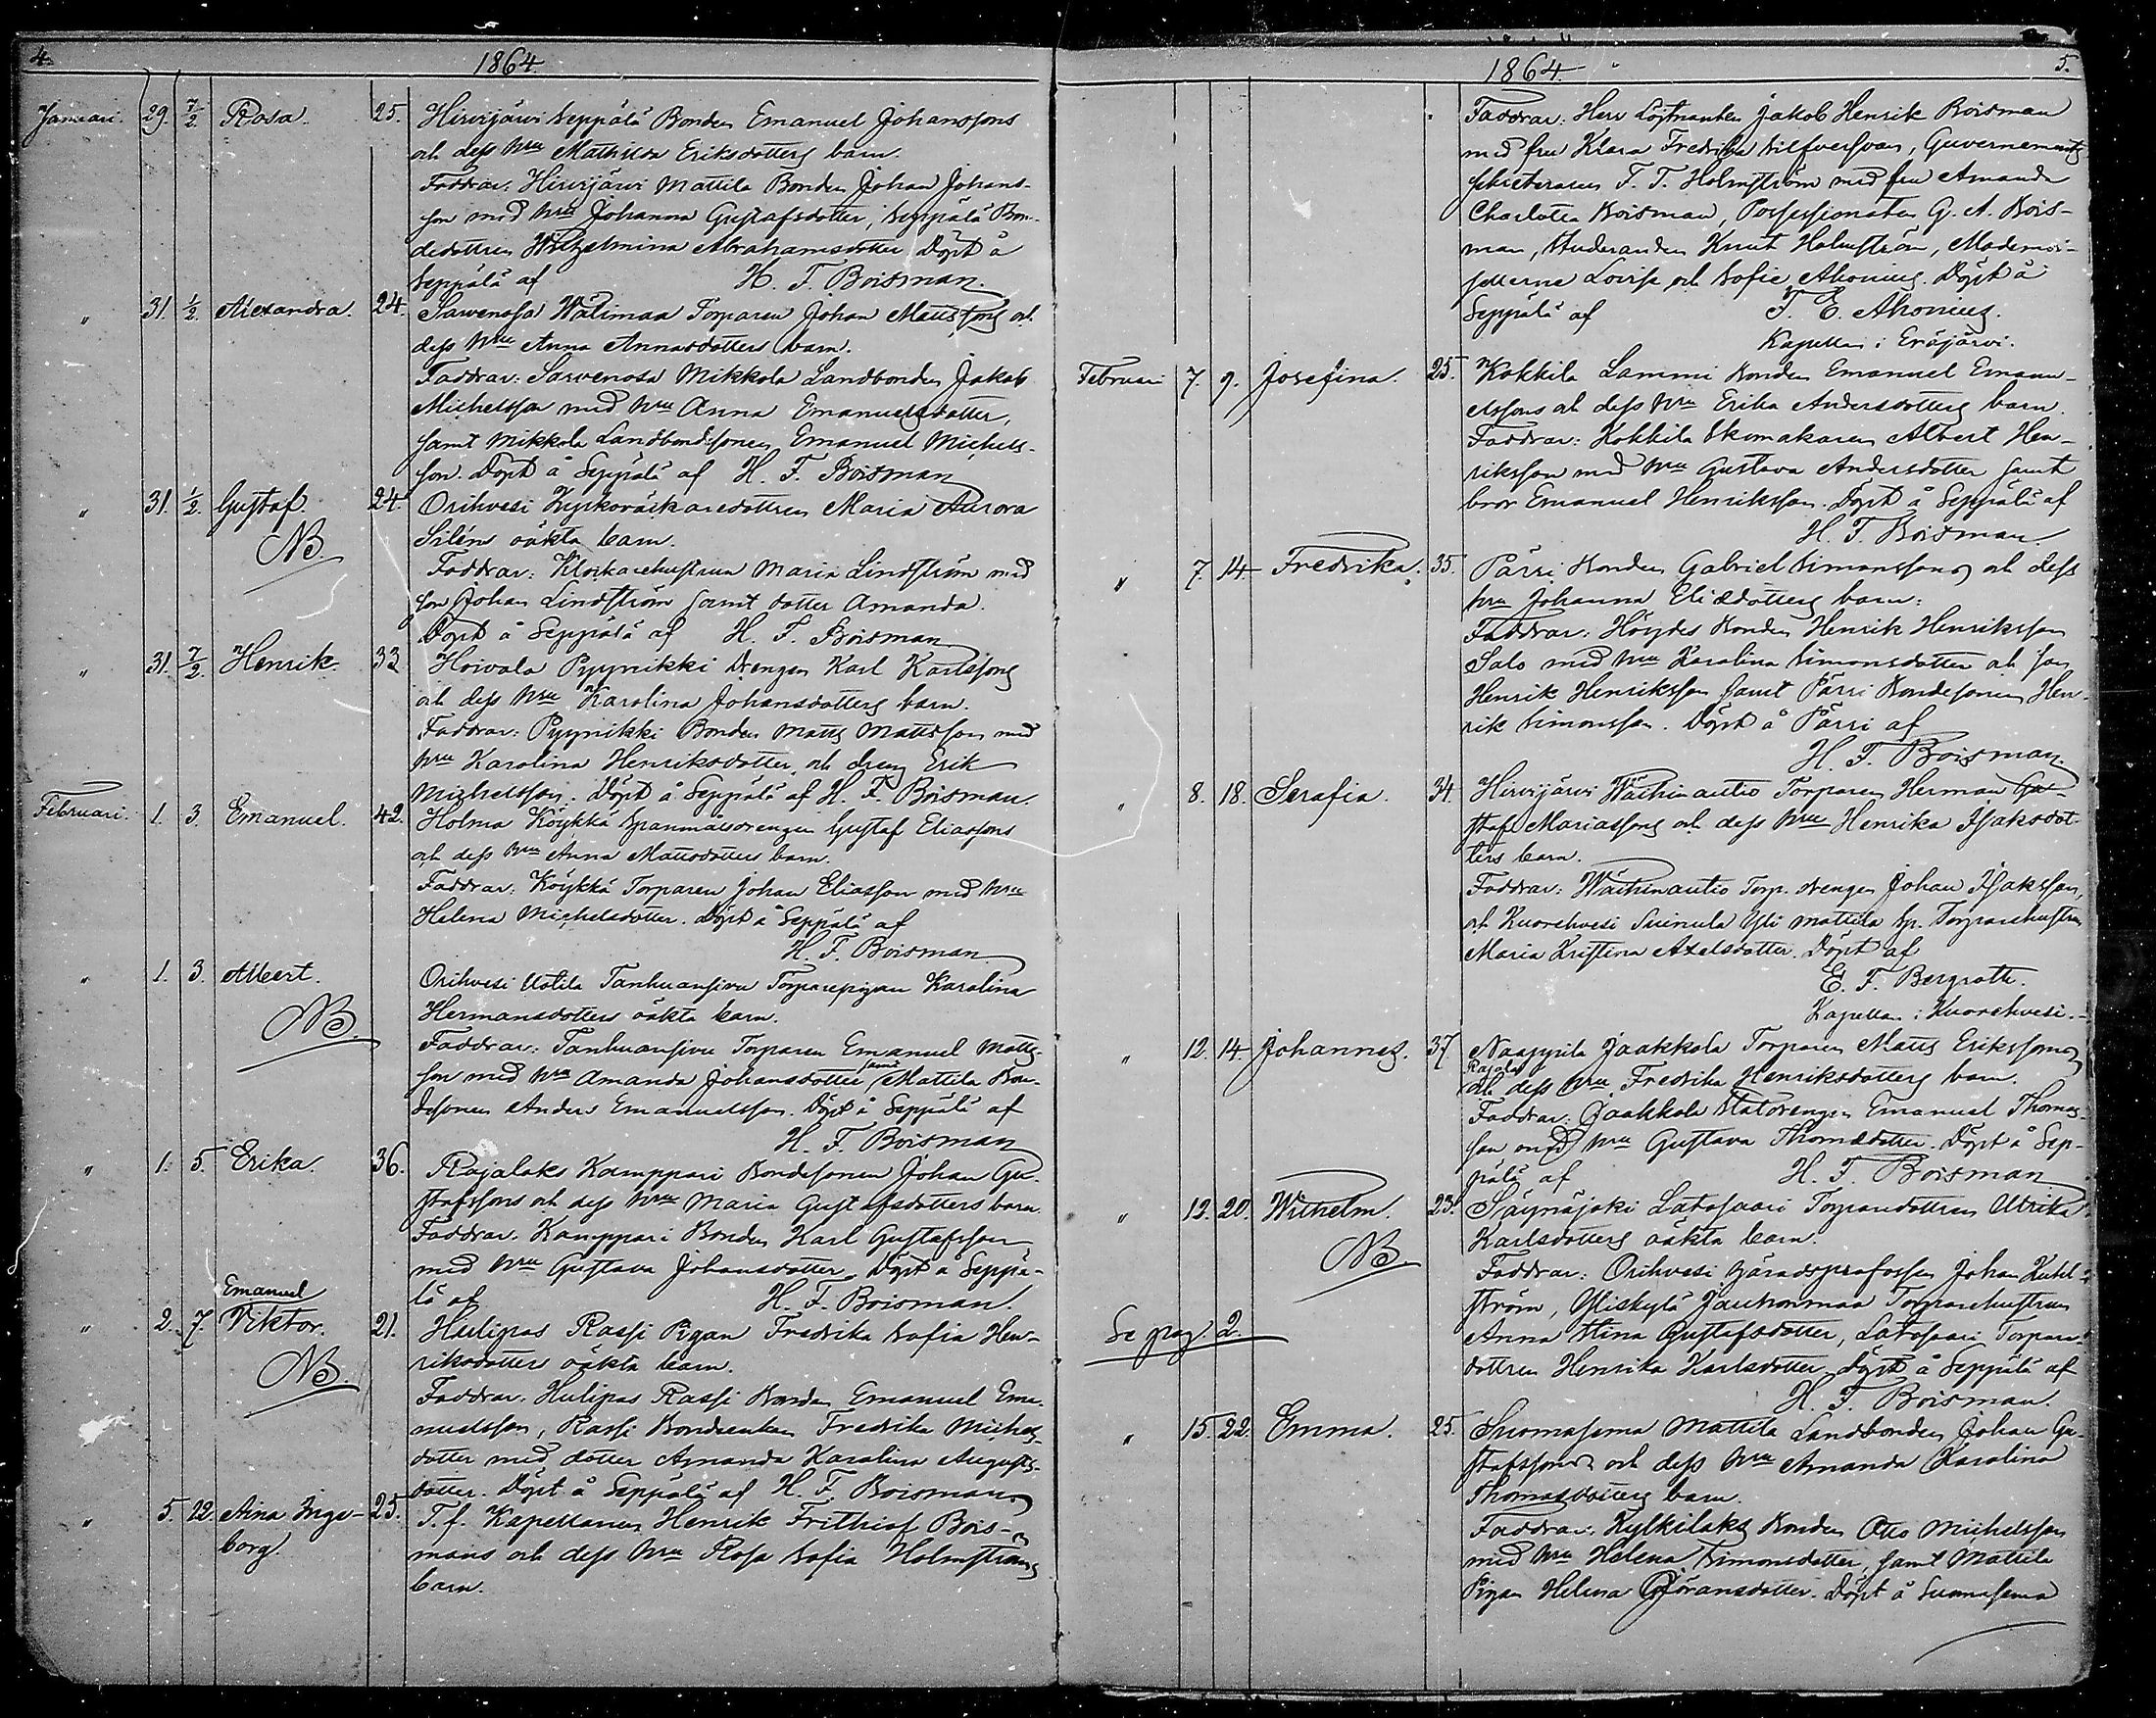 4.
1864.
Januari. 29. 7/2. Rosa. 25. Hirvijärvi Seppälä Bonden Emanuel Johanssons
och dess hru Mathilda Eriksdotters barn.
Faddrar: Hirvijärvi Mattila Bonden Johan Johans-
son med hru Johanna Gustafsdotter, Seppälä Bon-
dedottren Wilhelmina Abrahamsdotter Döpt å
Seppälä af H. F. Boisman.
" 31. 1/2. Alexandra. 24. Sarvenosa Wälimaa Torparen Johan Mattssons och
dess hru Anna Annasdotters barn.
Faddrar: Sarvenosa Mikkola Landbonden Jakob
Michelsson med hru Anna Emanuelsdotter,
samt Mikkola Landbondsonen Emanuel Michels-
son. Döpt å Seppälä af H. F. Boisman
" 31. 1/2. Gustaf. 24. Orihvesi Kyrkoväktaredottren Maria Aurora
NB. Siléns oäkta barn.
Faddrar: Klockarehustrun Maria Lindström med
son Johan Lindström samt dotter Amanda.
Döpt å Seppälä af H. F. Boisman
" 31. 7/2. Henrik. 33. Hoivala Pyynikki Drengen Karl Karlssons
och dess hru Karolina Johansdotters barn.
Faddrar: Pyynikki Bonden Matts Mattsson med
hru Karolina Henriksdotter, och dreng Erik
Michelsson. Döpt å Seppälä af H. F. Boisman.
Februari. 1. 3. Emanuel. 42. Holma Köykkä Spanmålsdrengen Gustaf Eliassons
och dess hru Anna Mattsdotters barn.
Faddrar: Köykkä Torparen Johan Eliasson med hru
Helena Michelsdotter. Döpt å Seppälä af
H. F. Boisman
" 1. 3. Albert. Orihvesi Uotila Tanhuansivu Torparepigan Karolina
NB. Hermansdotters oäkta barn.
Faddrar: Tanhuansivu Torparen Emanuel Matts-
son med hru Amanda Johansdotter samt Mattila Bon-
desonen Anders Emanuelsson. Döpt å Seppälä af
H. F. Boisman
" 1. 5. Erika. 36. Rajalaks Kamppari Bondesonen Johan Gu-
stafssons och dess hru Maria Gustafsdotters barn.
Faddrar. Kamppari Bonden Karl Gustafsson
med hru Gustava Johansdotter. Döpt å Seppä-
lä af H. F. Boisman.
Emanuel
" 2. 7. Viktor. 21. Hulipas Rassi Pigan Fredrika Sofia Hen-
NB. riksdotters oäkta barn.
Faddrar. Hulipas Rassi Bonden Emanuel Ema-
nuelsson, Rassi Bondeenkan Fredrika Michels-
dotter med dotter Amanda Karolina Augusts-
dotter. Döpt å Seppälä af H. F. Boisman
" 5. 22. Aina Inge- 25. T. f. Kapellanen Henrik Frithiof Bois-
borg. mans och dess hru Rosa Sofia Holmströms
barn.
1864.
5.
Faddrar: Herr Löjtnanten Jakob Henrik Boisman
med fru Klara Fredrika Silfversvan, Guvernements
sekreteraren F. T. Holmström med fru Amanda
Charlotta Boisman, Possessionaten G. A. Bois-
man, Studeranden Knut Holmström, Mademoi-
sellerna Lovisa och Sofie Ahonius. Döpt å
Seppälä af F. E. Ahonius.
Kapellan i Eräjärvi.
Februari 7. 9. Josefina. 25. Kokkila Lammi Bonden Emanuel Emanu-
elssons och dess hru Erika Andersdotters barn.
Faddrar: Kokkila Skomakaren Albert Hen-
riksson med hru Gustava Andersdotter samt
bror Emanuel Henriksson. Döpt å Seppälä af
H. F. Boisman
" 7. 14. Fredrika. 35. Pärri Bonden Gabriel Simonssons och dess
hru Johanna Eliædotters barn:
Faddrar: Bonden Henrik Henriksson
Salo med hru Karolina Simonsdotter och son
Henrik Henriksson samt Pärri Bondesonen Hen-
rik Simonsson. Döpt å Pärri af
H. F. Boisman
" 8. 18. Serafia. 34. Hirvijärvi Wäihinautio Torparen Herman Gu-
staf Mariassons och dess hru Henrika Isaksdot-
ters barn.
Faddrar: Wäihinautio Torp. drengen Johan Isaksson,
och Kuorehvesi Suinula Yli Mattila Sp. Torparehustrun
Maria Kristina Axelsdotter. Döpt af
E. F. Bergroth.
Kapellan i Kuorehvesi.
" 12. 14. Johannes. 37. Naappila Jaakkola Torparen Matts Erikssons
Rajala
och dess hru Fredrika Henriksdotters barn.
Faddrar: Jaakkola Statdrengen Emanuel Thomas-
son med hru Gustava Thomædotter. Döpt å Sep-
pälä af H. F. Boisman
" 12. 20. Wilhelm. 23. Säynäjoki Latosaari Torparedottren Ulrika
NB. Karlsdotters oäkta barn.
Faddrar: Orihvesi Häradsprofossen Johan
ström, Yliskylä Jauhonmaa Torparehustrun
Se pag. 2. Anna Stina Gustafsdotter, Latosaari Torpare-
dottren Henrika Karlsdotter. Döpt å Seppälä af
H. F. Boisman.
" 15. 22. Emma. 25. Suomasema Mattila Landbonden Johan Gu-
stafssons och dess hru Amanda Karolina
Thomasdotters barn.
Faddrar: Kylkilaks Bonden Otto Michelsson
med hru Helena Simonsdotter, samt Mattila
Pigan Helena Göransdotter. Döpt å Suomasema